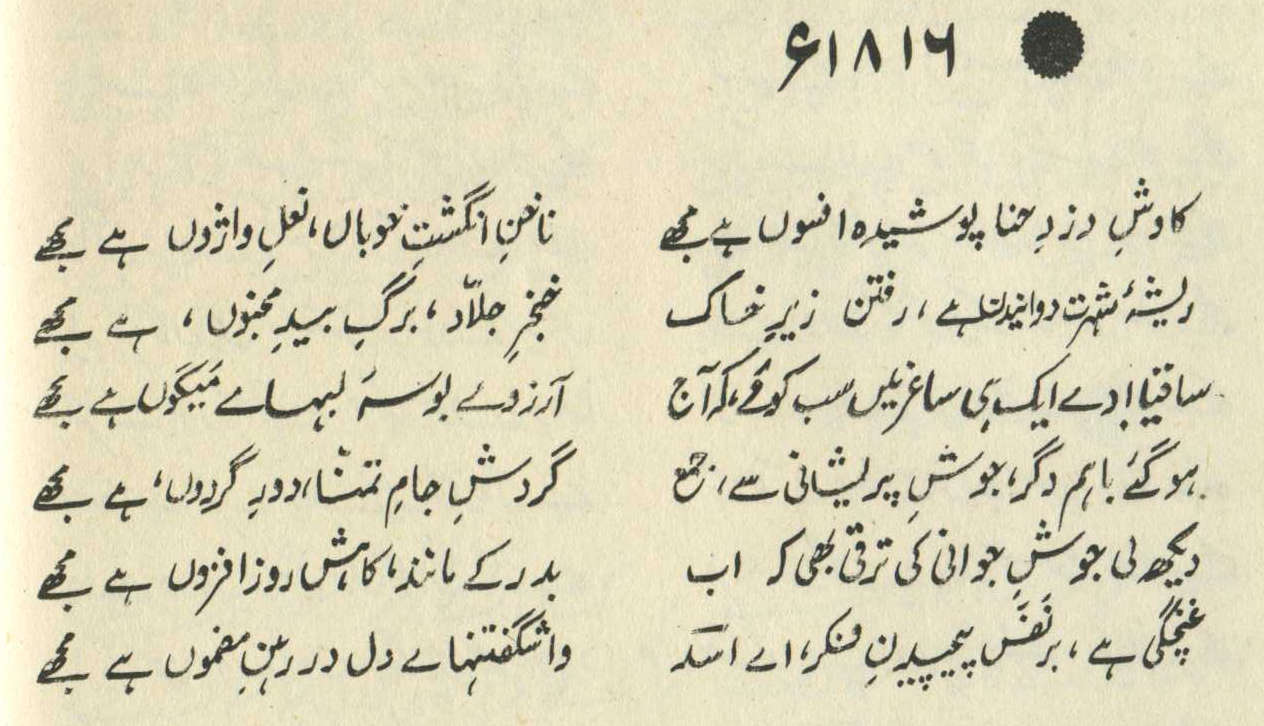 ۱۸۱۶ء
کاوشِ دزدِ حنا پوشیدہ افسوں ہے مجھے ناخنِ انگشتِ خوباں، نعلِ واژوں ہے مجھے
ریشۂ شہرت دوانیدن ہے، رفتن زیرِ خاک خنجرِ جلّاد، برگِ بیدِ مجنوں، ہے مجھے
ساقیا! دے ایک ہی ساغر میں سب کو مے، کہ آج آرزوے بوسۂ لبہاے مَیگوں ہے مجھے
ہو گئے باہم دگر، جوشِ پریشانی سے، جمع گردشِ جامِ تمنّا، دورِ گردوں، ہے مجھے
دیکھ لی جوشِ جوانی کی ترقی بھی کہ اب بدر کے مانند، کاہش روز افزوں ہے مجھے
غنچگی ہے، بر نَفَس پیچیدنِ فکر، اے اسدؔ واشگفتنہاے دل در رہنِ مضموں ہے مجھے